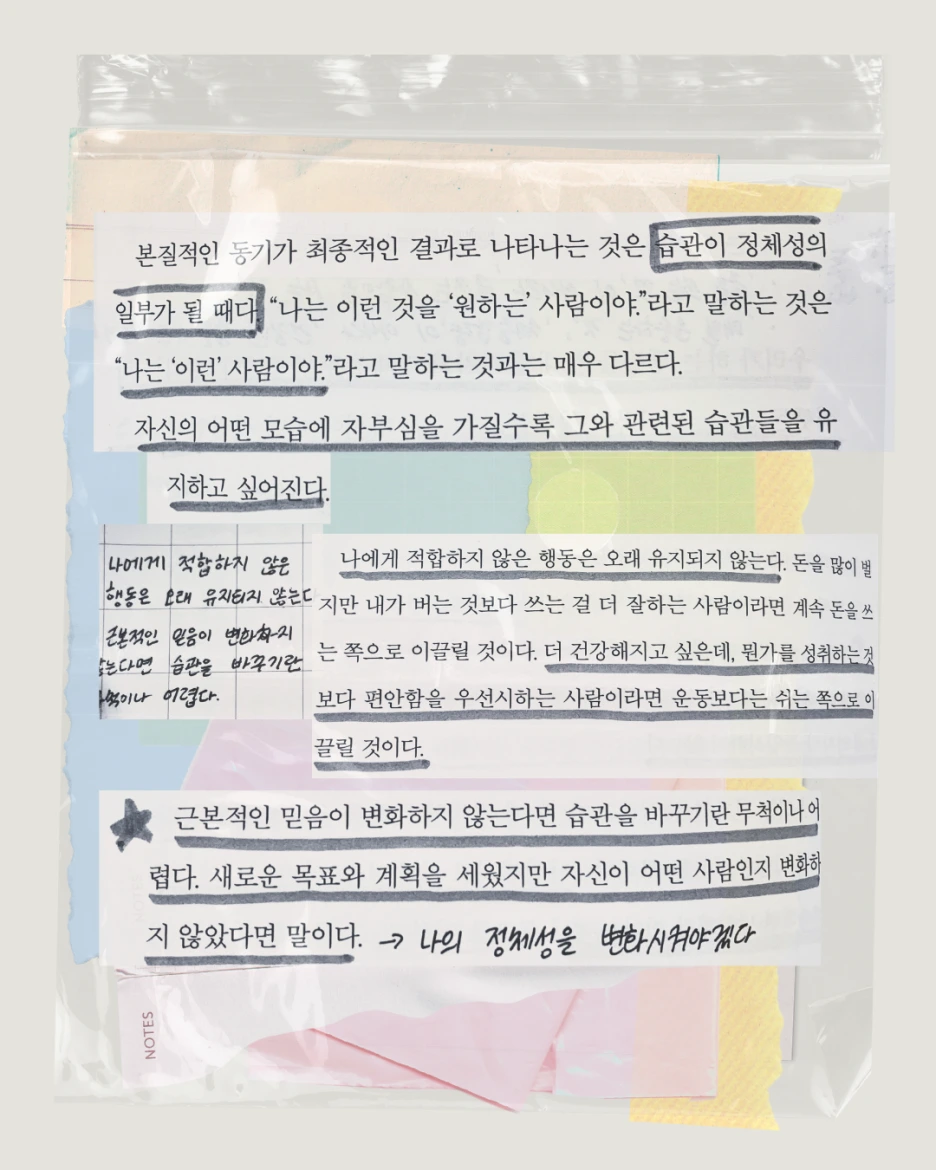 본질적인 동기가 최종적인 결과로 나타나는 것은 습관이 정체성의
일부가 될 때다. “나는 이런 것을 ‘원하는’ 사람이야.”라고 말하는 것은
“나는 ‘이런’ 사람이야.”라고 말하는 것과는 매우 다르다.
자신의 어떤 모습에 자부심을 가질수록 그와 관련된 습관들을 유
지하고 싶어진다.
나에게 적합하지 않은
행동은 오래 유지되지 않는다
근본적인 믿음이 변화하지
않는다면 습관을 바꾸기란
무척이나 어렵다.
나에게 적합하지 않은 행동은 오래 유지되지 않는다. 돈을 많이 벌
지만 내가 버는 것보다 쓰는 걸 더 잘하는 사람이라면 계속 돈을 쓰
는 쪽으로 이끌릴 것이다. 더 건강해지고 싶은데, 뭔가를 성취하는 것
보다 편안함을 우선시하는 사람이라면 운동보다는 쉬는 쪽으로 이
끌릴 것이다.
근본적인 믿음이 변화하지 않는다면 습관을 바꾸기란 무척이나 어
렵다. 새로운 목표와 계획을 세웠지만 자신이 어떤 사람인지 변화하
지 않았다면 말이다. → 나의 정체성을 변화시켜야겠다
NOTES